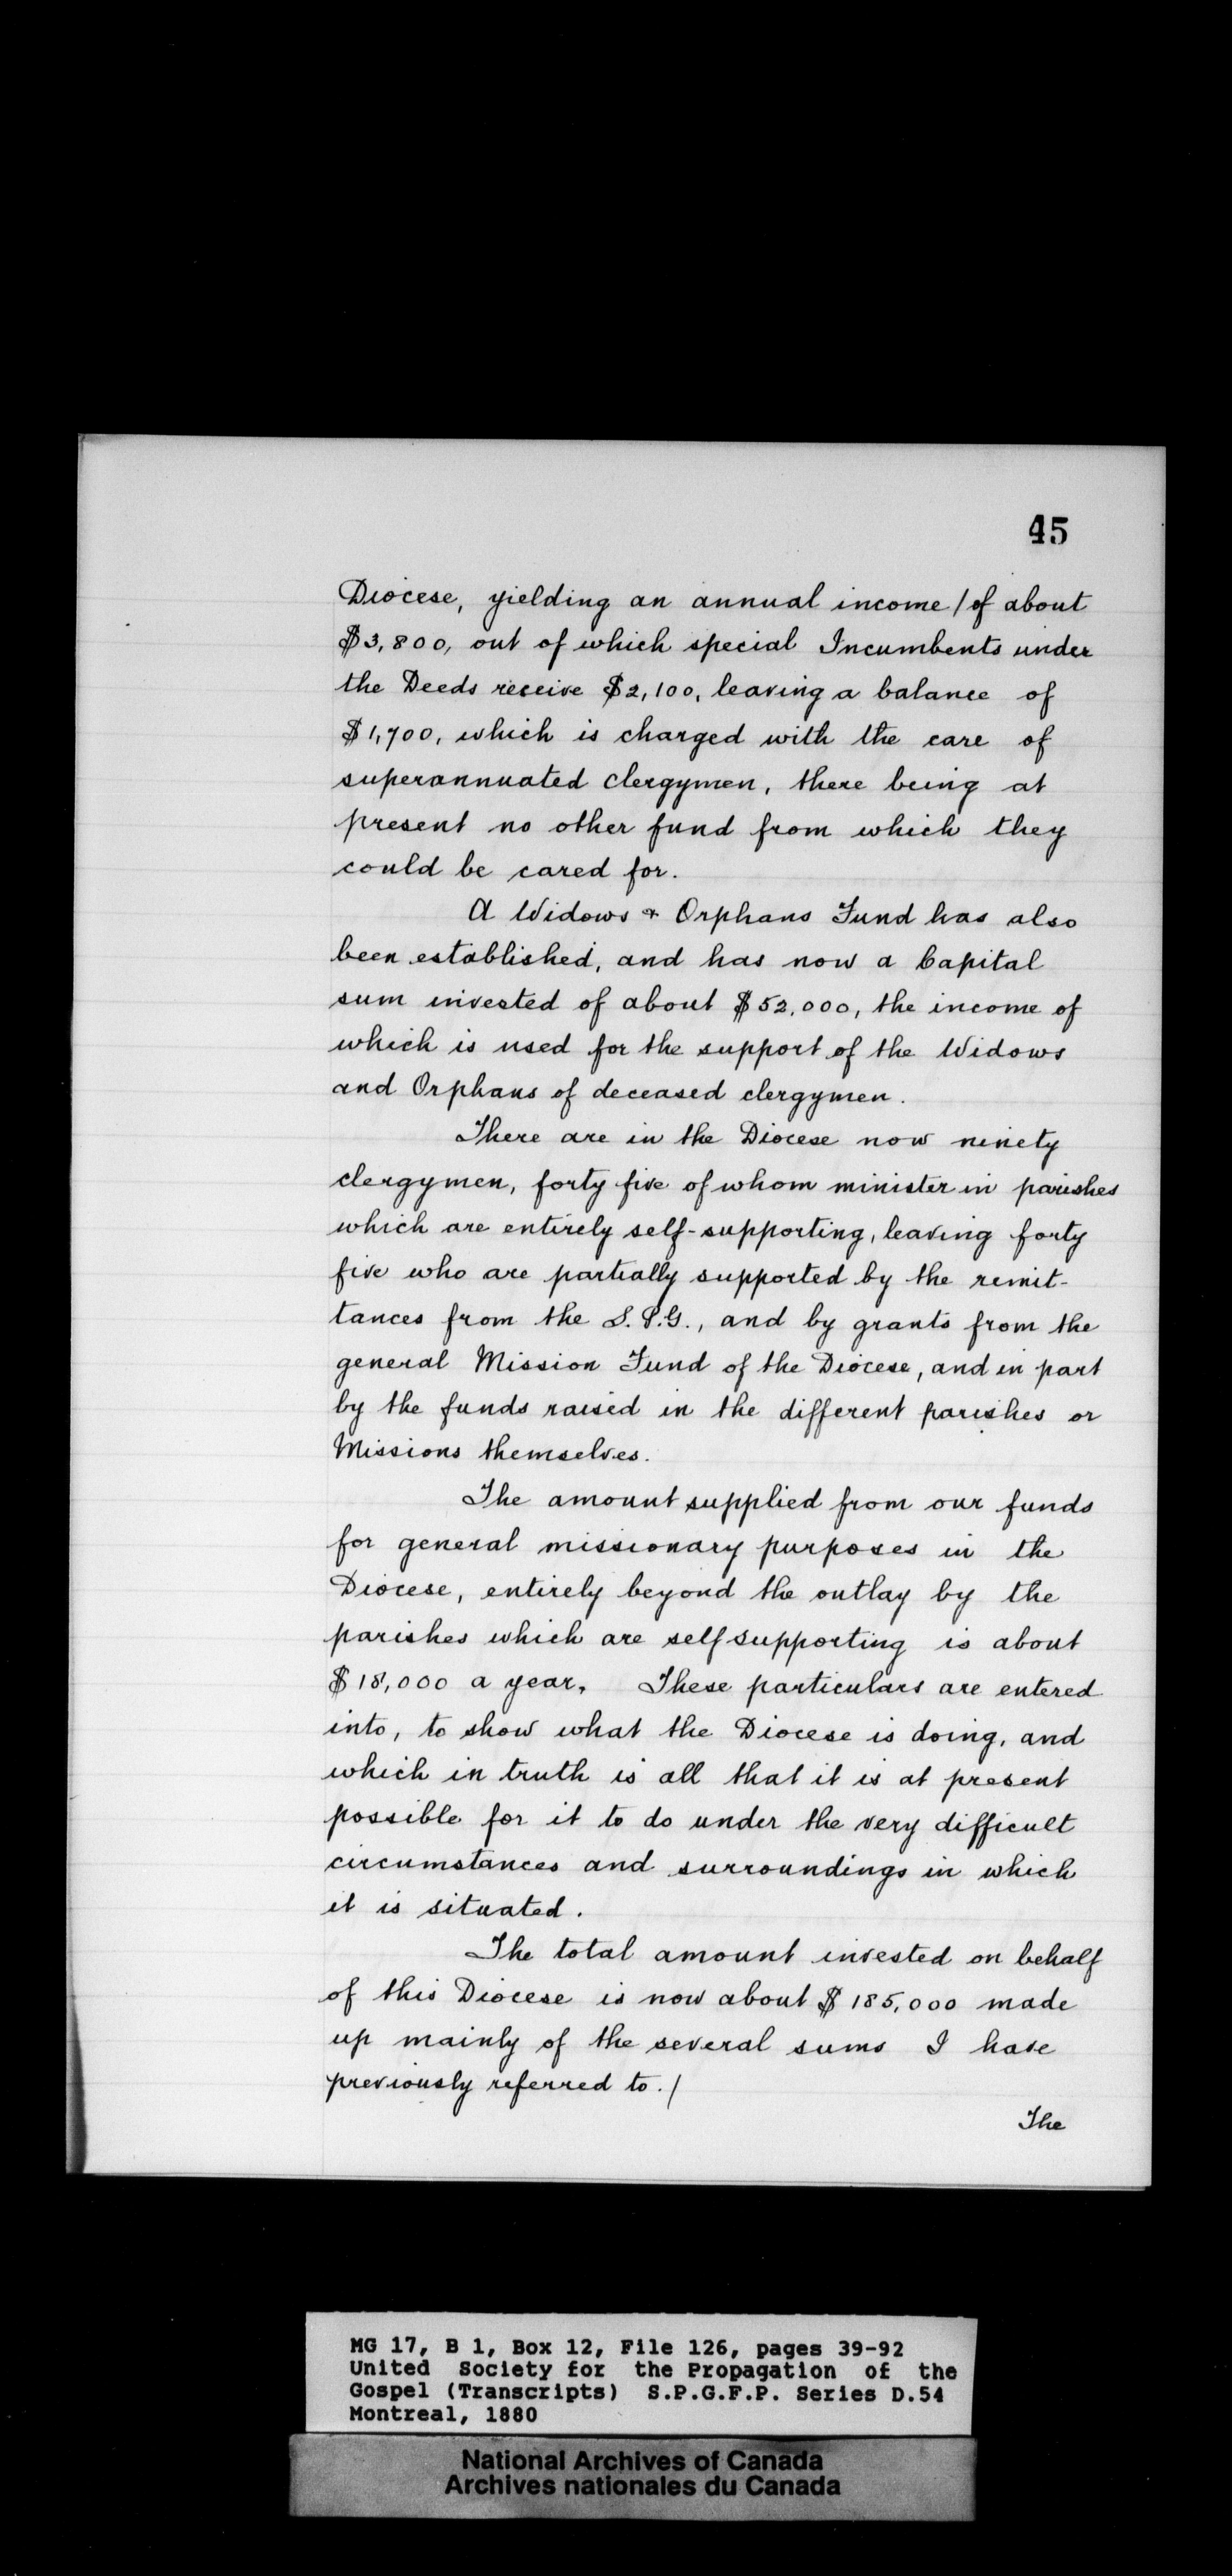 45
Diocese, yielding an annual income / of about
$3,800, out of which special Incumbents under
the Deeds receive $2,100, leaving a balance of
$1,700, which is charged with the care of
superannuated clergymen, there being at
present no other fund from which they
could be cared for.
A Widows & Orphans Fund has also
been established, and has now a Capital
sum invested of about $52,000, the income of
which is used for the support of the Widows
and Orphans of deceased clergymen.
There are in the Diocese now ninety
clergymen, forty five of whom minister in parishes
which are entirely self-supporting, leaving forty
five who are partially supported by the remit-
tances from the S.P.G., and by grants from the
general Mission Fund of the Diocese, and in part
by the funds raised in the different parishes or
Missions themselves.
The amount supplied from our funds
for general missionary purposes in the
Diocese, entirely beyond the outlay by the
parishes which are self supporting is about
$18,000 a year. These particulars are entered
into, to show what the Diocese is doing, and
which in truth is all that it is at present
possible for it to do under the very difficult
circumstances and surroundings in which
it is situated.
The total amount invested on behalf
of this Diocese is now about $185,000 made
up mainly of the several sums I have
previously referred to. /
The
MG 17, B 1, Box 12, File 126, pages 39-92
United Society for the Propagation of the
Gospel (Transcripts) S.P.G.F.P. Series D.54
Montreal, 1880
National Archives of Canada
Archives nationales du Canada